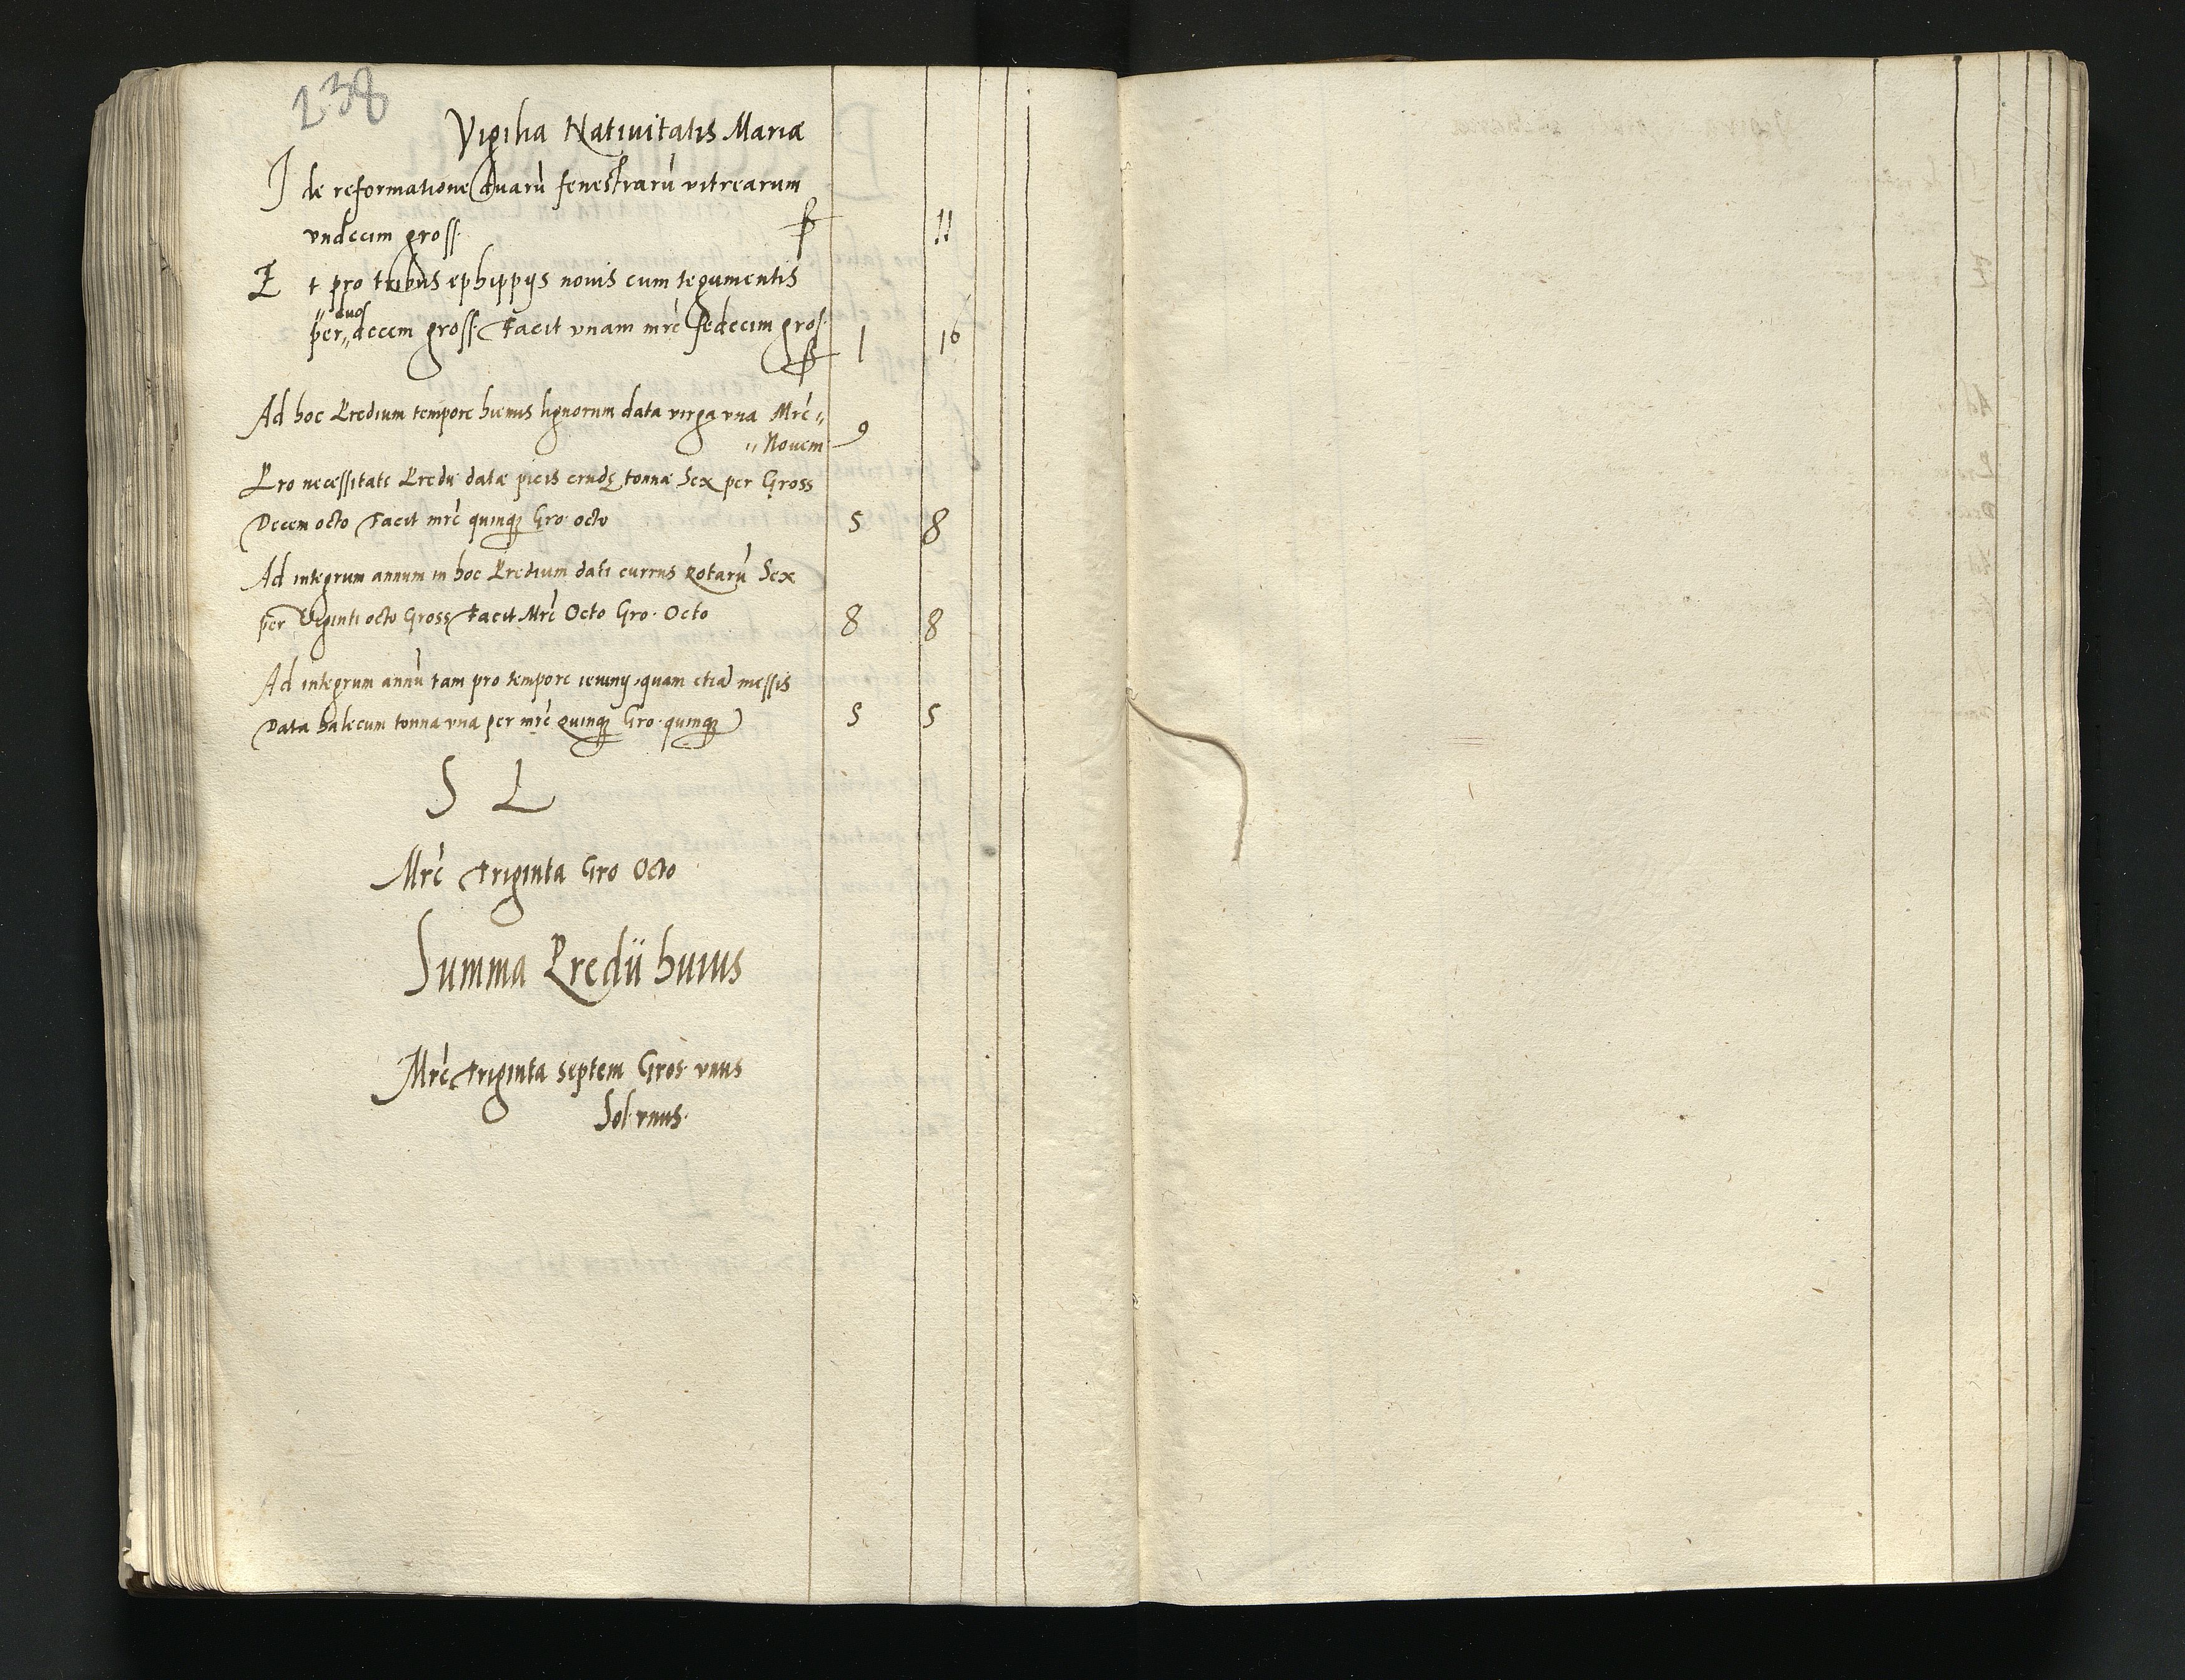 238
Vigilia Natiuitatis Mariæ
I de reformatione duarū fenestrarū vitrearum
vndecim gross. ꝭ 11
E t pro tribus ephippijs nouis cum tegumentis
duo
per „ decem gross. Facit vnam mrć sedecim gros.
1 16
Ad hoc Predium tempore hiemis lignorum data virga vna Mrć „
„ Nouem 9
Pro necessitate Predii datæ picis crudę tonnæ Sex per Gross
Decem octo Facit mrć quinqꝫ Gro. octo 5 8
Ad integrum annum in hoc Predium dati currus Rotarū Sex
per Viginti octo Gross Facit Mrć Octo Gro. Octo 8 8
Ad integrum annū tam pro tempore ieiunij, quam etiā messis
Data halecum tonna vna per mrć Quinqꝫ Gro. quinqꝫ 5 5
S L
Mrć Triginta Gro Octo
Summa Predii huius
Mrć Triginta septem Gros. vnus
Sol. vnus.